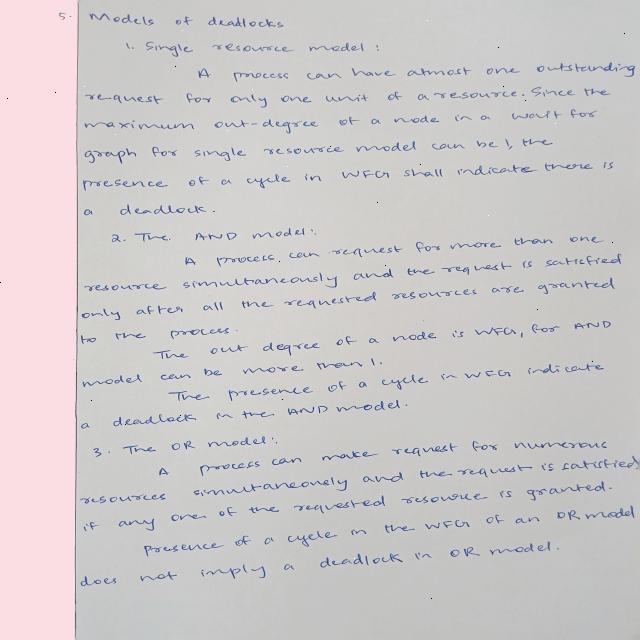 5. Models of deadlocks
1. Single resource model :
A process can have atmost one outstanding
request for only one unit of a resource. Since the
maximum out-degree of a node in a wait for
graph for single resource model can be 1, the
presence of a cycle in WFG shall indicate there is
a deadlock.
2. The AND model:
A process can request for more than one
resource simultaneously and the request is satisfied
only after all the requested resources are granted
to the process.
The out degree of a node is WFG, for AND
model can be more than 1.
The presence of a cycle in WFG indicate
a deadlock in the AND model.
3. The OR model:
A process can make request for numerous
resources simultaneously and the request is satisfied
if any one of the requested resource is granted.
Presence of a cycle in the WFG of an OR model
does not imply a deadlock in OR model.